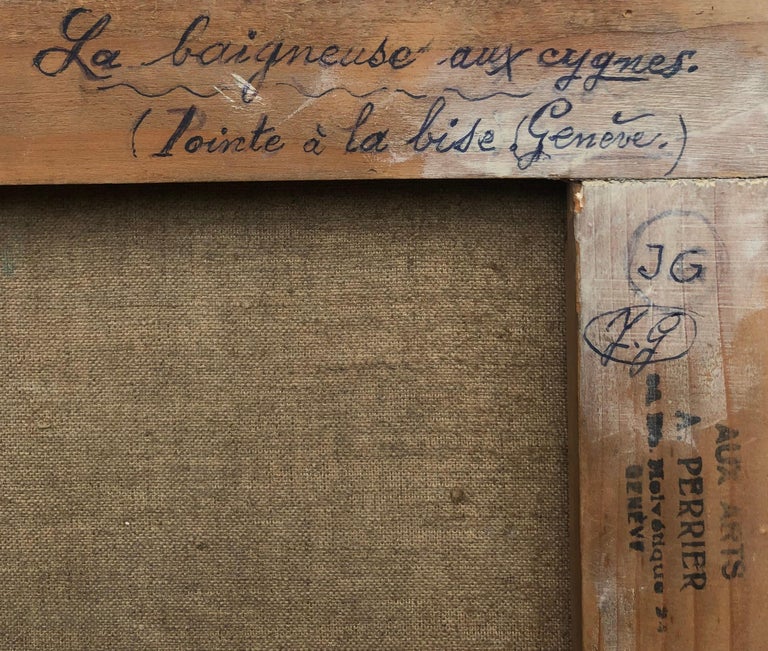 La baigneuse aux cygnes.
(Pointe à la bise. Genève.)
JG
J.G
AUX ARTS
A. PERRIER
Helvétique
GENÈVE